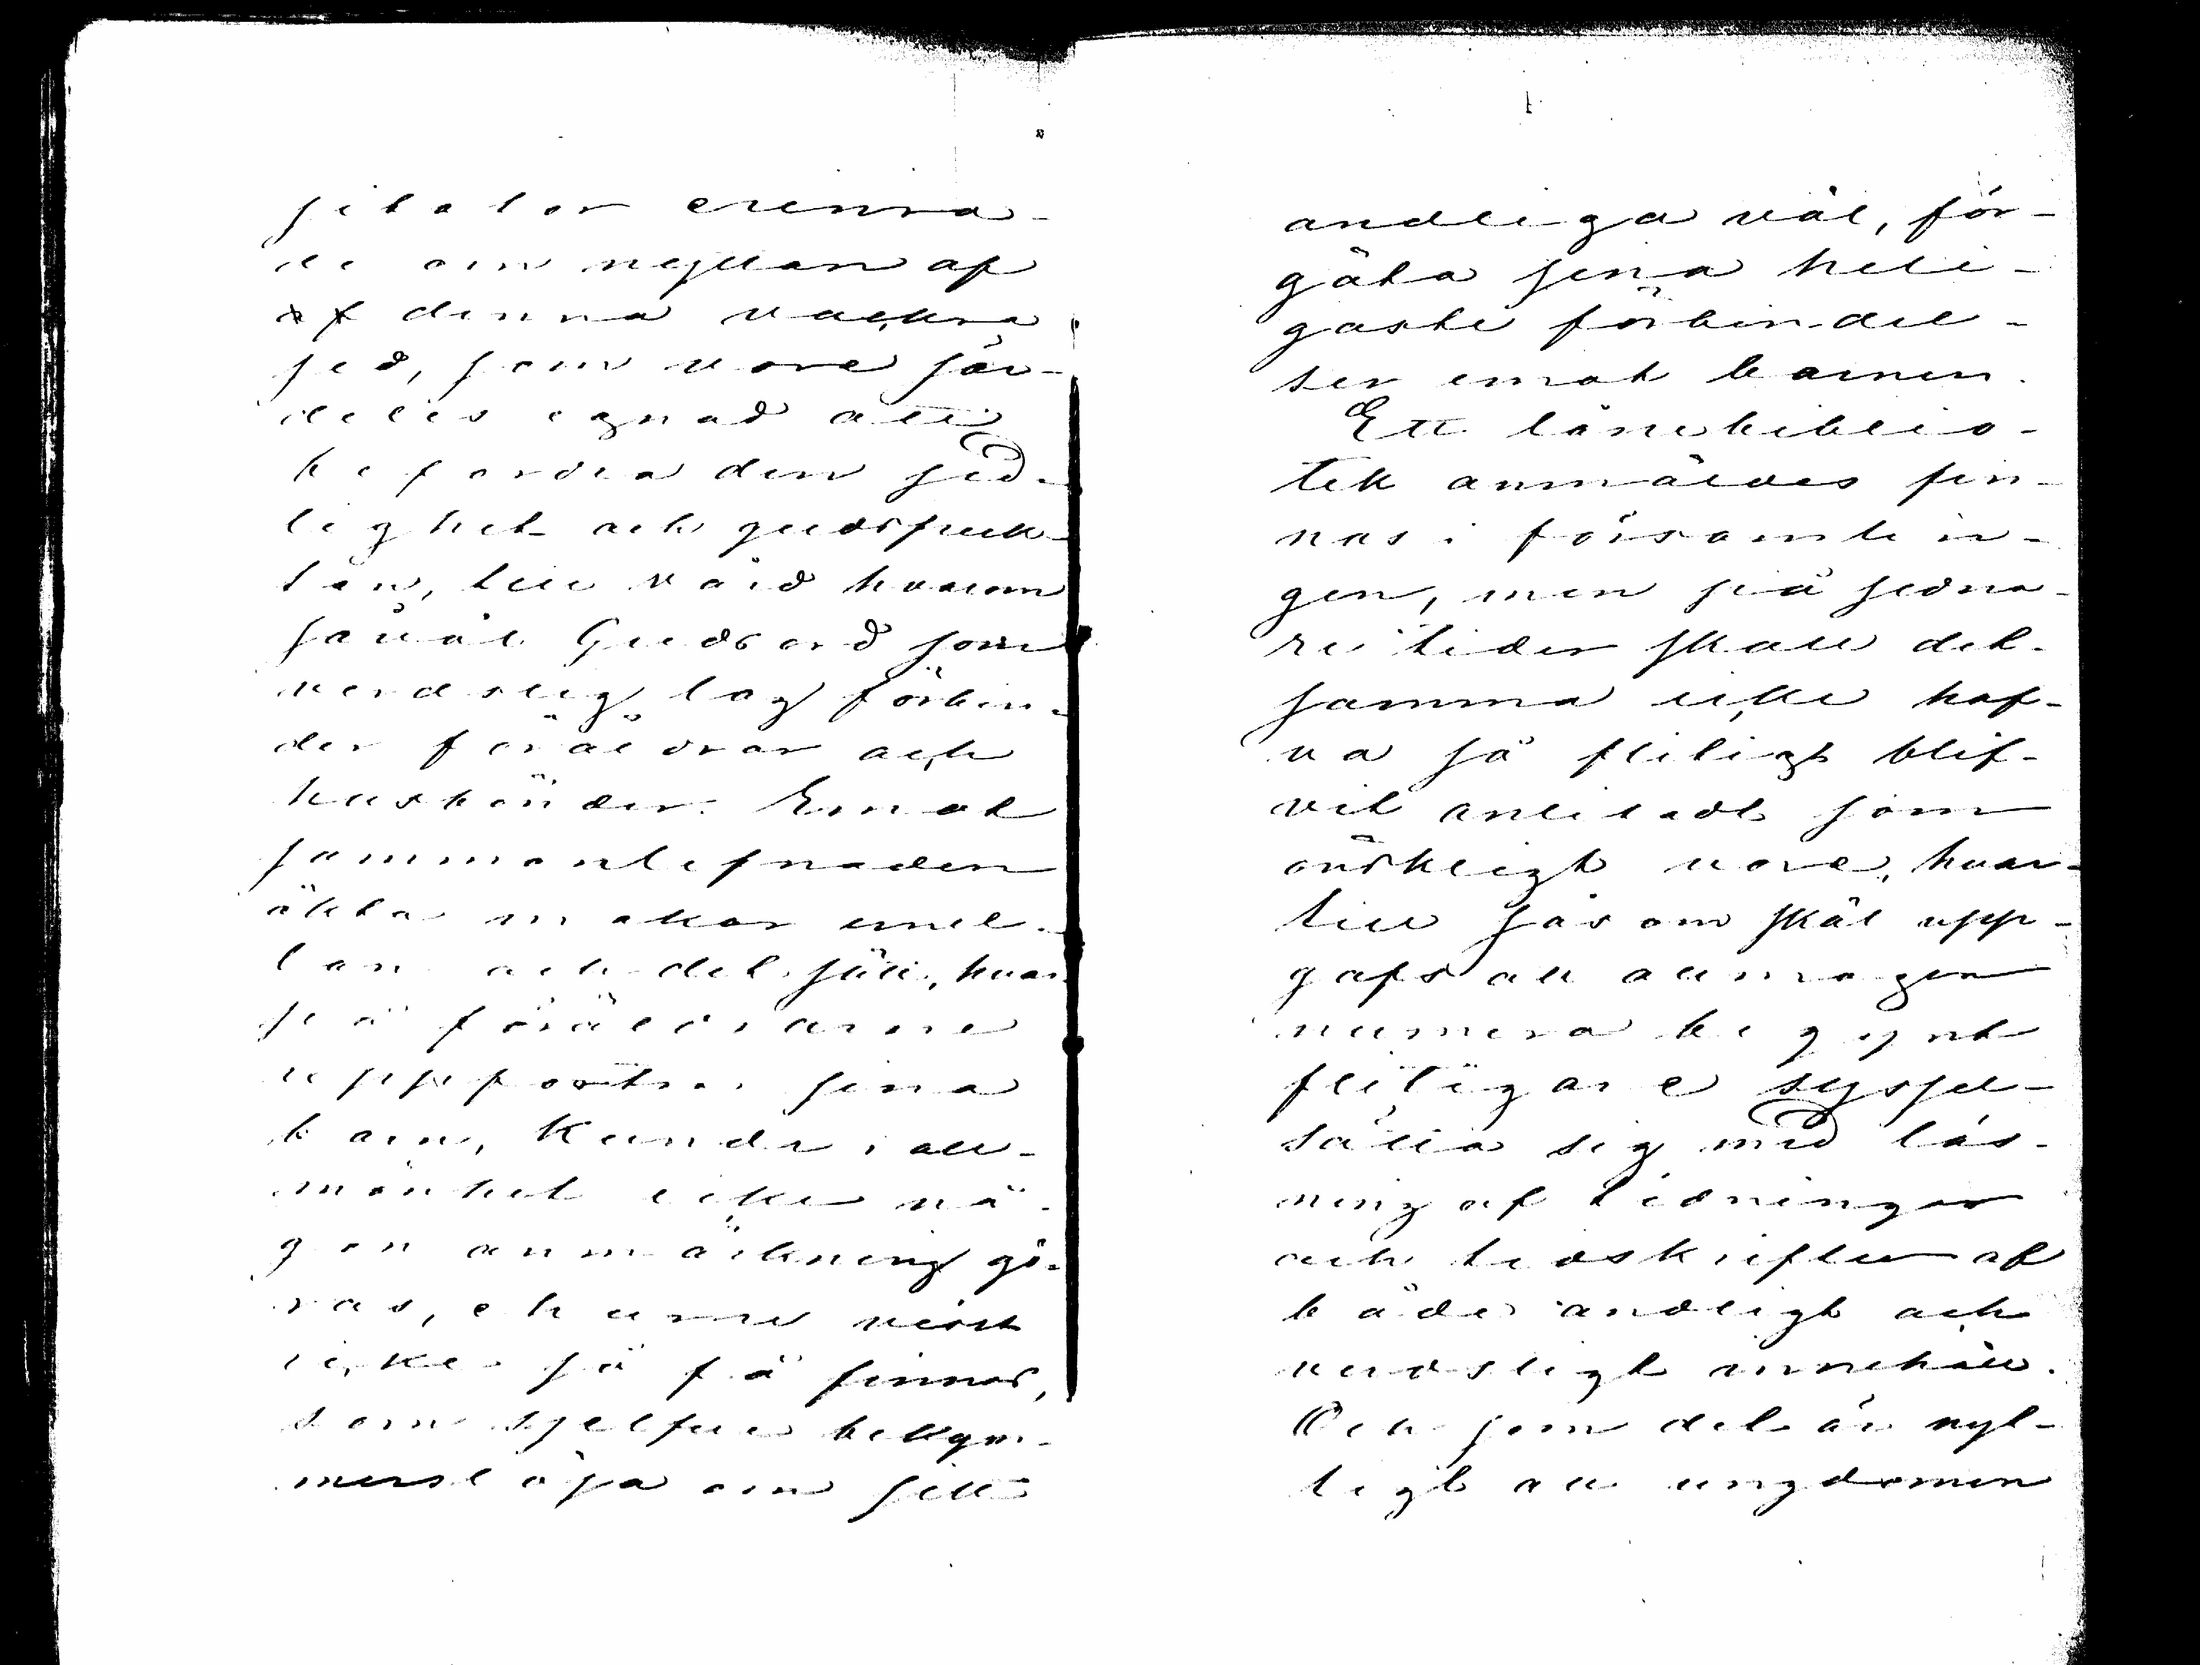 sitator erinra-
de om nyttan af
denna vackra
sed, som vore sär-
deles egnad att
befordra den sed-
lighet och gudsfruk-
tan, till vård hvarom
såväl Guds ord som
verdslig lag förbin-
der föräldrar och
husbönder. Emot
sammanlefnaden
äkta makar emel-
lan och det sätt, hvar-
på föräldrarne
uppfostra sina
barn, kunde i all-
mänhet icke nå-
gon anmärkning gö-
ras, ehuru visst
icke så få finnas,
som sjelfve bekym-
merslösa om sitt
andeliga väl, för-
gäta sina heli-
gaste förbindel-
ser emot barnen.
Ett lånebiblio-
tek anmäldes fin-
nas i församlin-
gen, men på sedna-
re tider skall det-
samma icke haf-
va så flitigt blif-
vit anlitadt som
önskligt vore, hvar-
till såsom skäl upp-
gafs att allmogen
numera begynt
flitigare syssel-
sätta sig med läs-
ning af tidningar
och tidskrifter af
både andligt och
verdsligt innehåll.
Och som det är nyt-
tigt att ungdomen